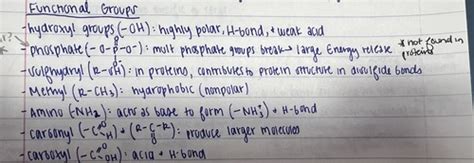 Functional Groups
-hydroxyl groups (-OH): highly polar, H-bond, + weak acid
-phosphate (-O-P-O-): mult phosphate groups break → large Energy release * not found in proteins
-sulfhydryl (R-SH): in proteins, contributes to protein structure in disulfide bonds
-Methyl (R-CH₃): hydrophobic (nonpolar)
-Amino (NH₂): acts as base to form (-NH₃⁺) + H-bond
-Carbonyl (-C=O H) + (R-C-R): produce larger molecules
-carboxyl (-C=O OH): acid + H-bond